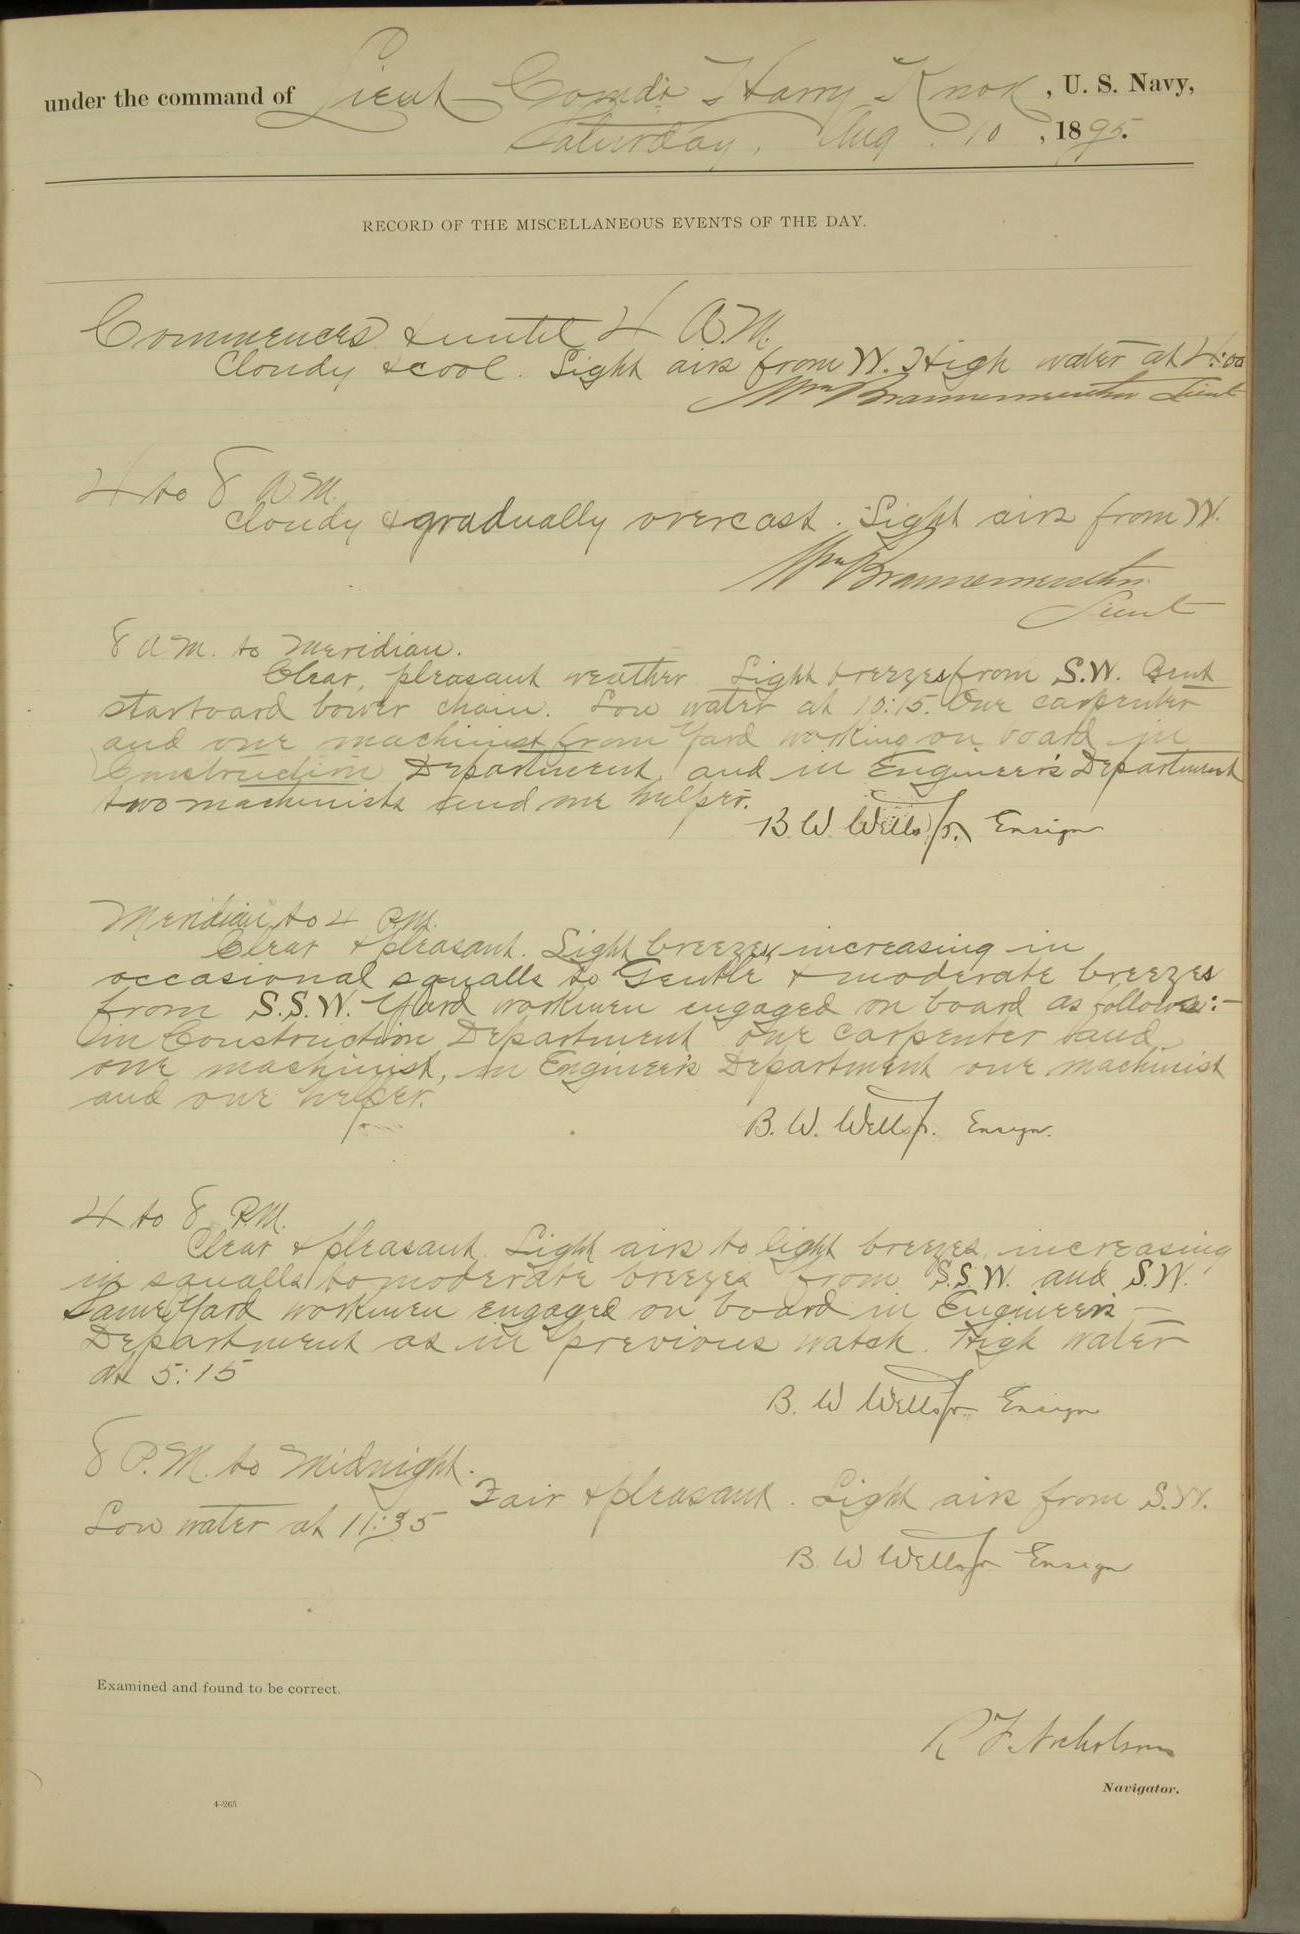 under the command of Lieut Comdr Harry Knox, U. S. Navy,
Saturday, Aug. 10, 1895.
RECORD OF THE MISCELLANEOUS EVENTS OF THE DAY.
Commences & until 4 A.M.
Cloudy & cool. Light airs from W. High water at 4:00
Wm Braunersreuther Lieut
4 to 8 A.M.
Cloudy & gradually overcast. Light airs from W.
Wm Braunersreuther
Lieut
8 A.M. to Meridian.
Clear, pleasant weather Light breezes from S.W. Bent
starboard bower chain. Low water at 10:15. One carpenter
and one machinist from Yard working on board in
Construction Department, and in Engineer's Department
two machinists and one helper.
B. W. Wells Jr. Ensign
Meridian to 4 P.M.
Clear & pleasant. Light breezes, increasing in
occasional squalls to Gentle & moderate breezes
from S.S.W. Yard workmen engaged on board as follows:-
in Construction Department one carpenter and
one machinist, in Engineer's Department one machinist
and one helper.
B. W. Wells Jr. Ensign.
4 to 8 P.M.
Clear & pleasant. Light airs to light breezes, increasing
in squalls to moderate breezes from S.S.W. and S.W.
Same Yard workmen engaged on board in Engineer's
Department as in previous watch. High water
at 5:15
B. W. Wells Jr. Ensign
8 P.M. to Midnight.
Fair & pleasant. Light airs from S.W.
Low water at 11:35
B. W. Wells Jr Ensign
Examined and found to be correct.
R F Nicholson
Navigator.
4-265